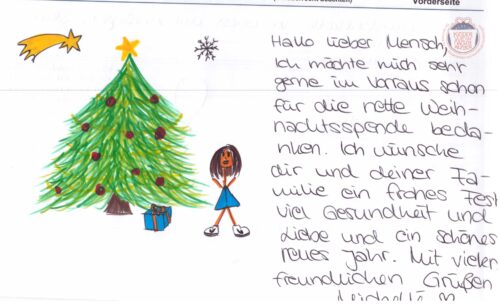 Vorderseite
Hallo lieber Mensch,
Ich möchte mich sehr
gerne im Vorraus schon
für die nette Weih-
nachtsspende beda-
nken. Ich wünsche
dir und deiner Fa-
milie ein frohes Fest
viel Gesundheit und
Liebe und ein schönes
neues Jahr. Mit vielen
freundlichen Grüßen